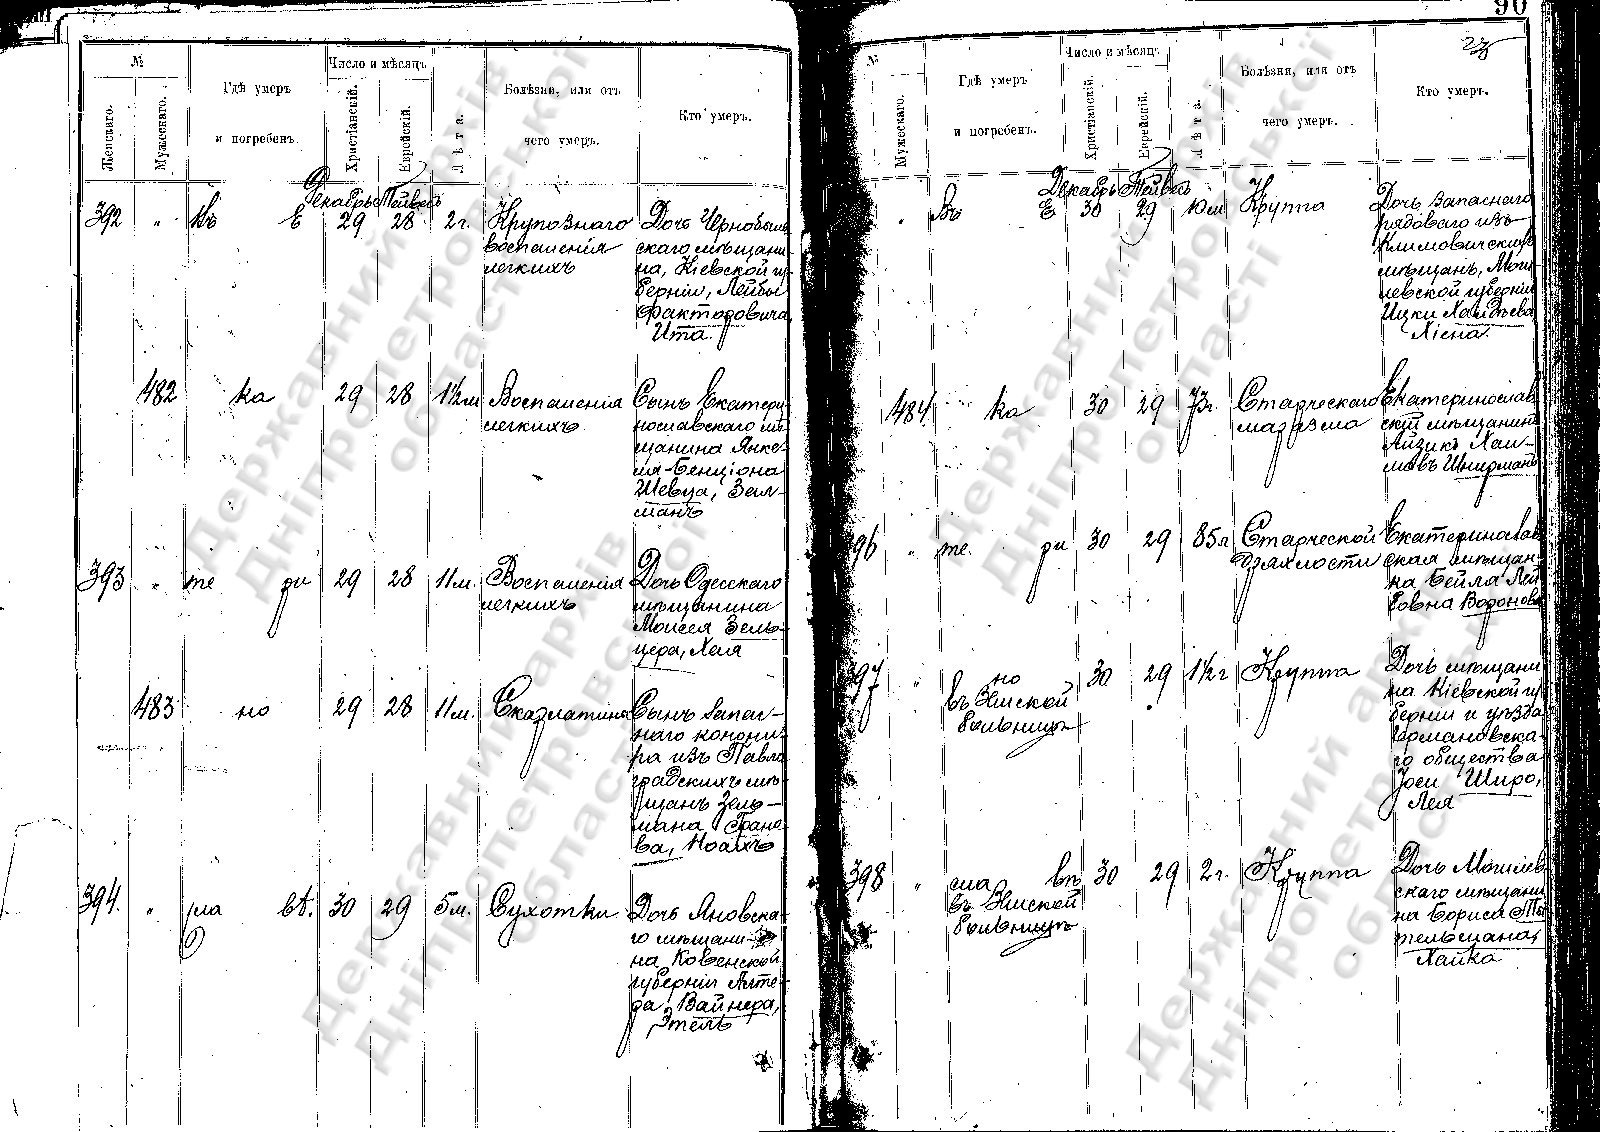 90
№
Женскаго.
Мужескаго.
Гдѣ умеръ
и погребенъ.
Число и мѣсяцъ
Христіанскій.
Еврейскій.
Лѣта.
Болѣзни, или отъ
чего умеръ.
Кто умеръ.
Декабрь Тейвесъ
392 " Въ Е 29 28 2 г. Крупознаго
воспаленія
легкихъ
Дочь Чернобыль
скаго мѣщани
на, Кіевской гу
берніи, Лейбы
Факторовича,
Ита.
482 ка 29 28 1½ м Воспаленія
легкихъ
Сынъ Екатери
нославскаго мѣ
щанина Янке
ля-Бенціона
Шевца, Зел-
манъ
393 " те ри 29 28 11 м. Воспаленія
легкихъ
Дочь Одесскаго
мѣщанина
Моисея Зель-
цера, Хая
483 но 29 28 11 м. Скарлатина
Сынъ запас-
наго канони-
ра изъ Павло
градскихъ мѣ
щанъ Зель-
мана Грано
ва, Ноахъ
394. " сла вѣ. 30 29 5 м. Сухотки
Дочь Яновска-
го мѣщани-
на Ковенской
губерніи Алте-
ра Вайнера,
Этель
№
Мужескаго.
Гдѣ умеръ
и погребенъ.
Число и мѣсяцъ
Христіанскій.
Еврейскій.
Лѣта.
Болѣзни, или отъ
чего умеръ.
Кто умеръ.
Декабрь Тейвесъ
" Въ Е 30 29 10 м Круппа
Дочь запаснаго
рядоваго изъ
Климовичскихъ
мѣщанъ, Моги
левской губерніи
Ицки
484 ка 30 29 73 г. Старческаго
маразма
Екатеринослав
скій мѣщанинъ
Айзикъ Хаи-
мовъ Шнирманъ
96 " те ри 30 29 85 л Старческой
дряхлости
Екатеринослав
ская мѣщан-
ка Бейла Лей
бовна Воронова
397 " но 30 29 1½ г Круппа
въ Земской
больницѣ
Дочь мѣщани
на Кіевской гу
берніи и уѣзда
Германовска-
го общества
Іоси Широ,
Лея
398 " сла вѣ 30 29 2 г. Круппа
въ Земской
больницѣ
Дочь Могилев
скаго мѣщани
на Бориса Ти
тельмана,
Хайка
Державний архів
Дніпропетровської
області